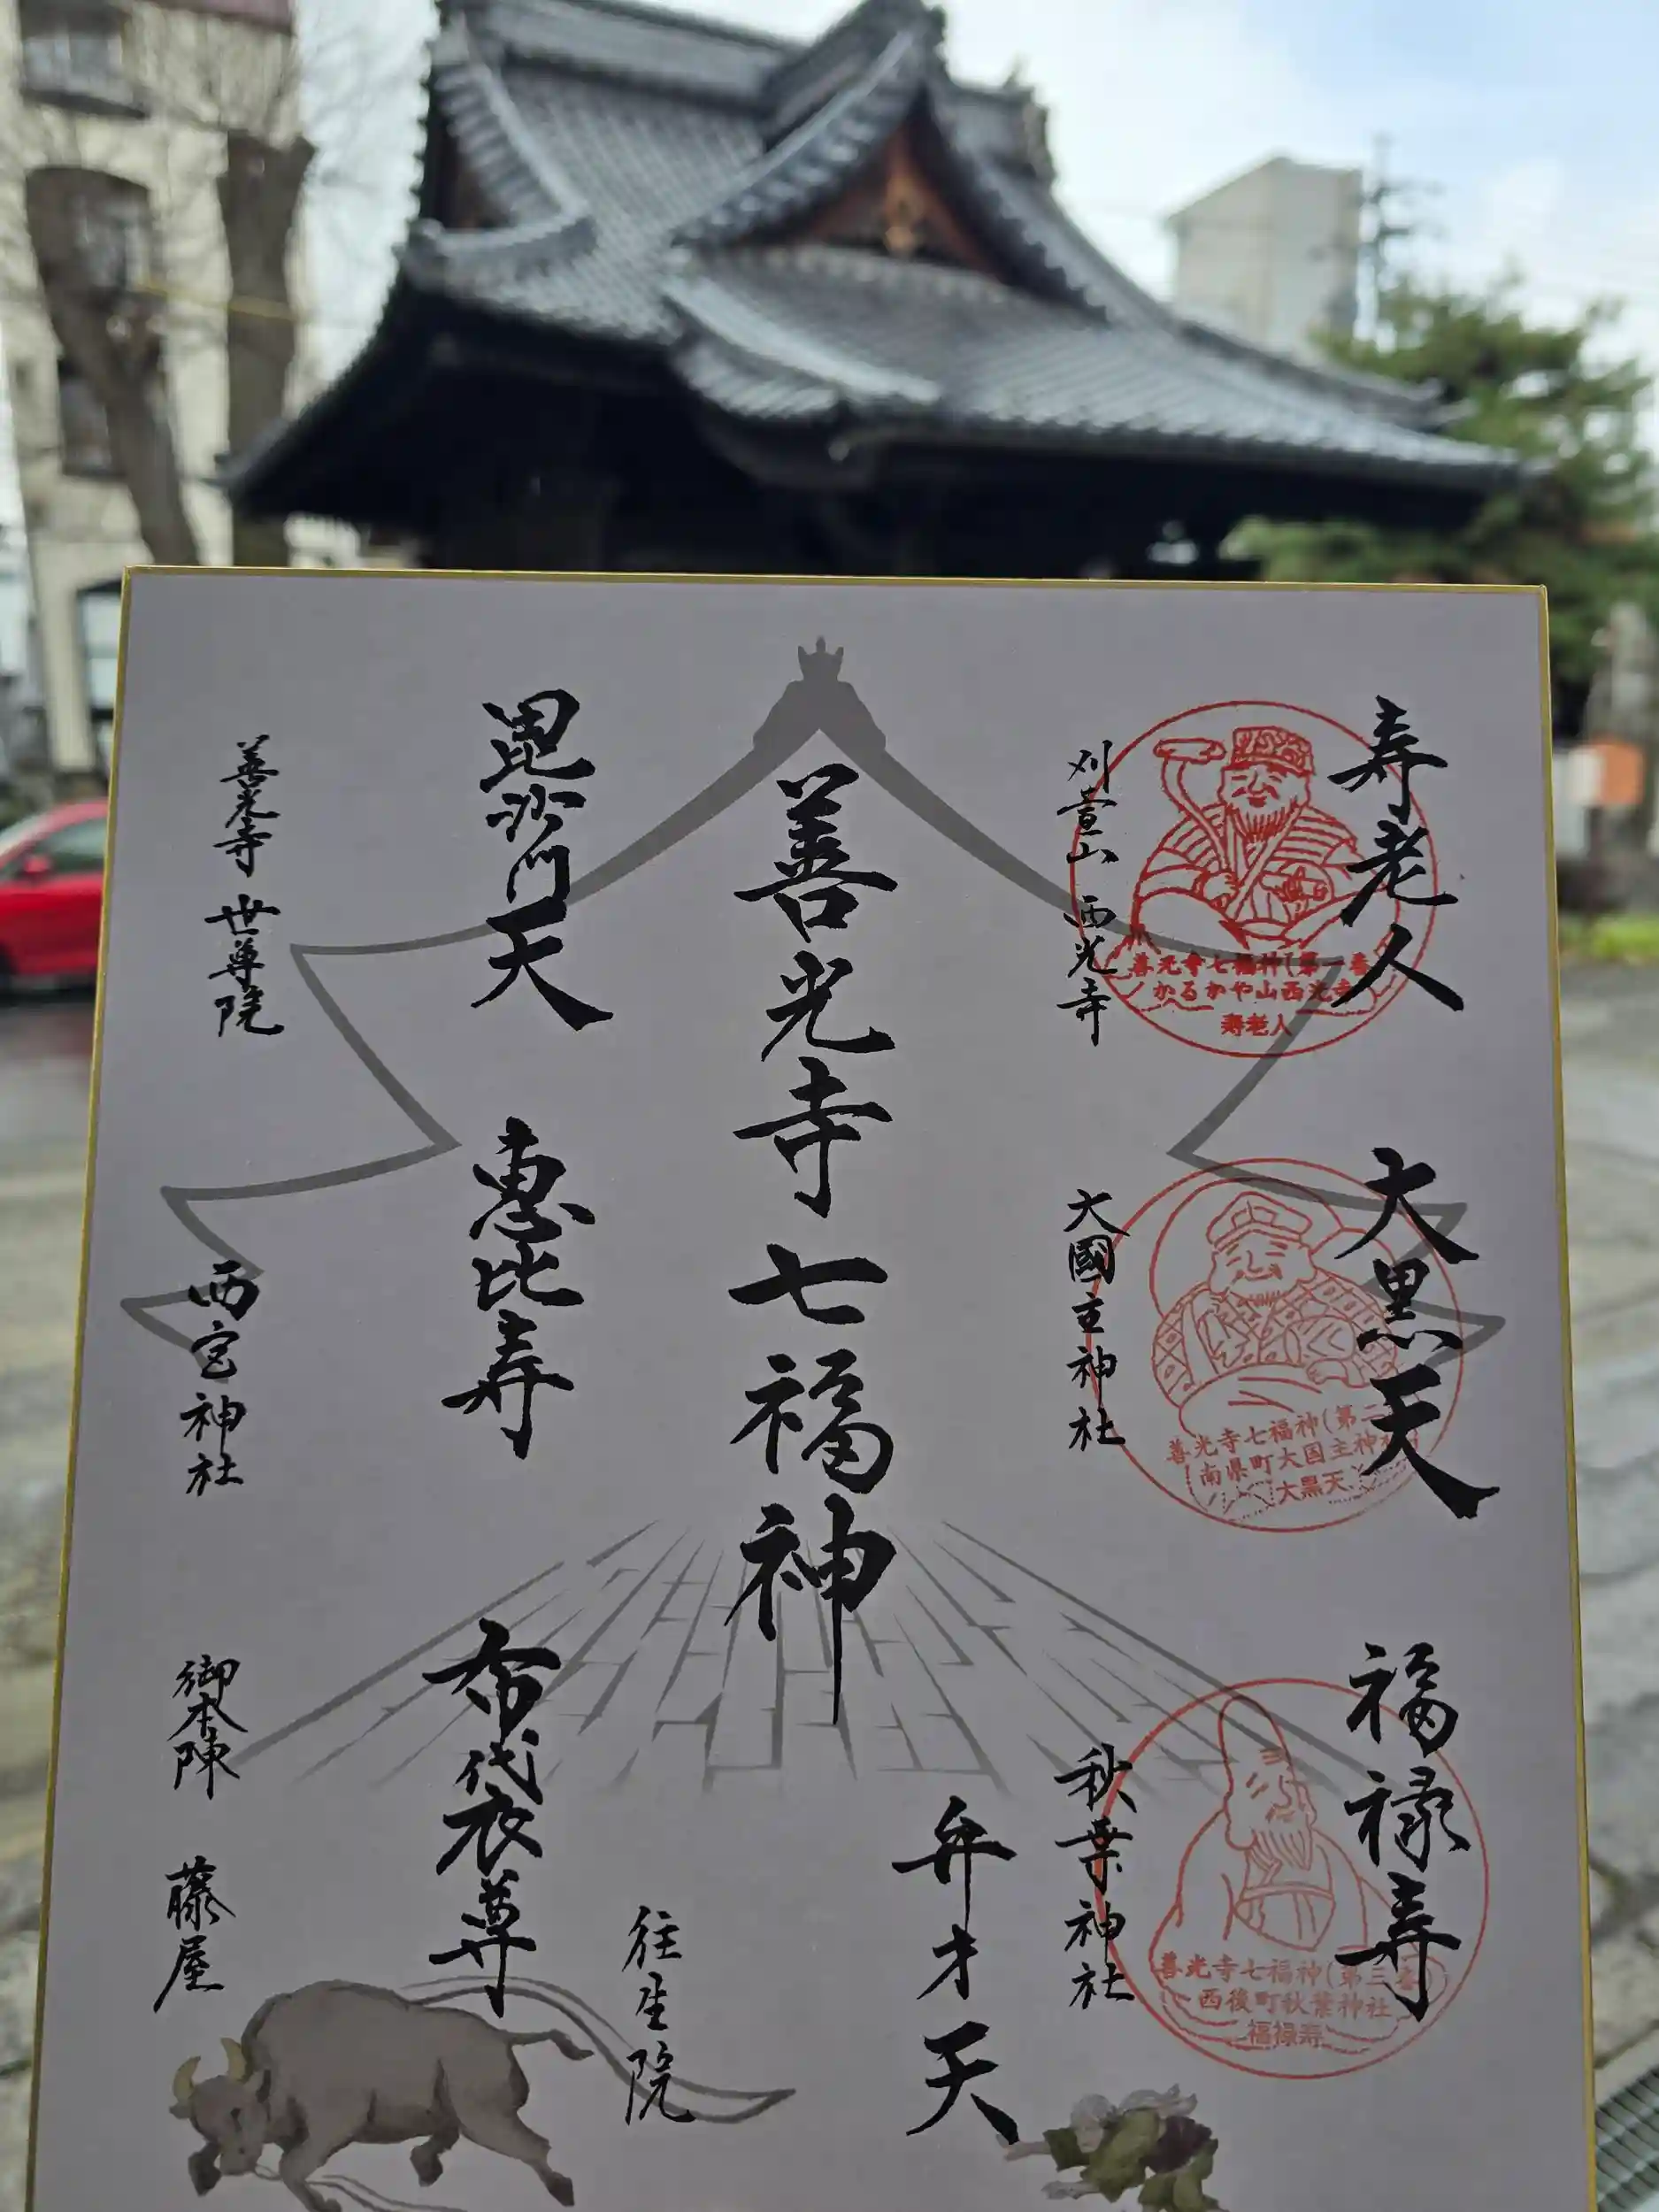 寿老人
善光寺七福神(第一番
かるかや山西光寺
寿老人
刈萱山 西光寺
大黒天
善光寺七福神(第二
南県町大国主神社
大黒天
大國主神社
福禄寿
善光寺七福神(第三番)
西後町秋葉神社
福禄寿
秋葉神社
弁才天
往生院
善光寺七福神
毘沙門天
善光寺 世尊院
恵比寿
西宮神社
布袋尊
御本陣 藤屋